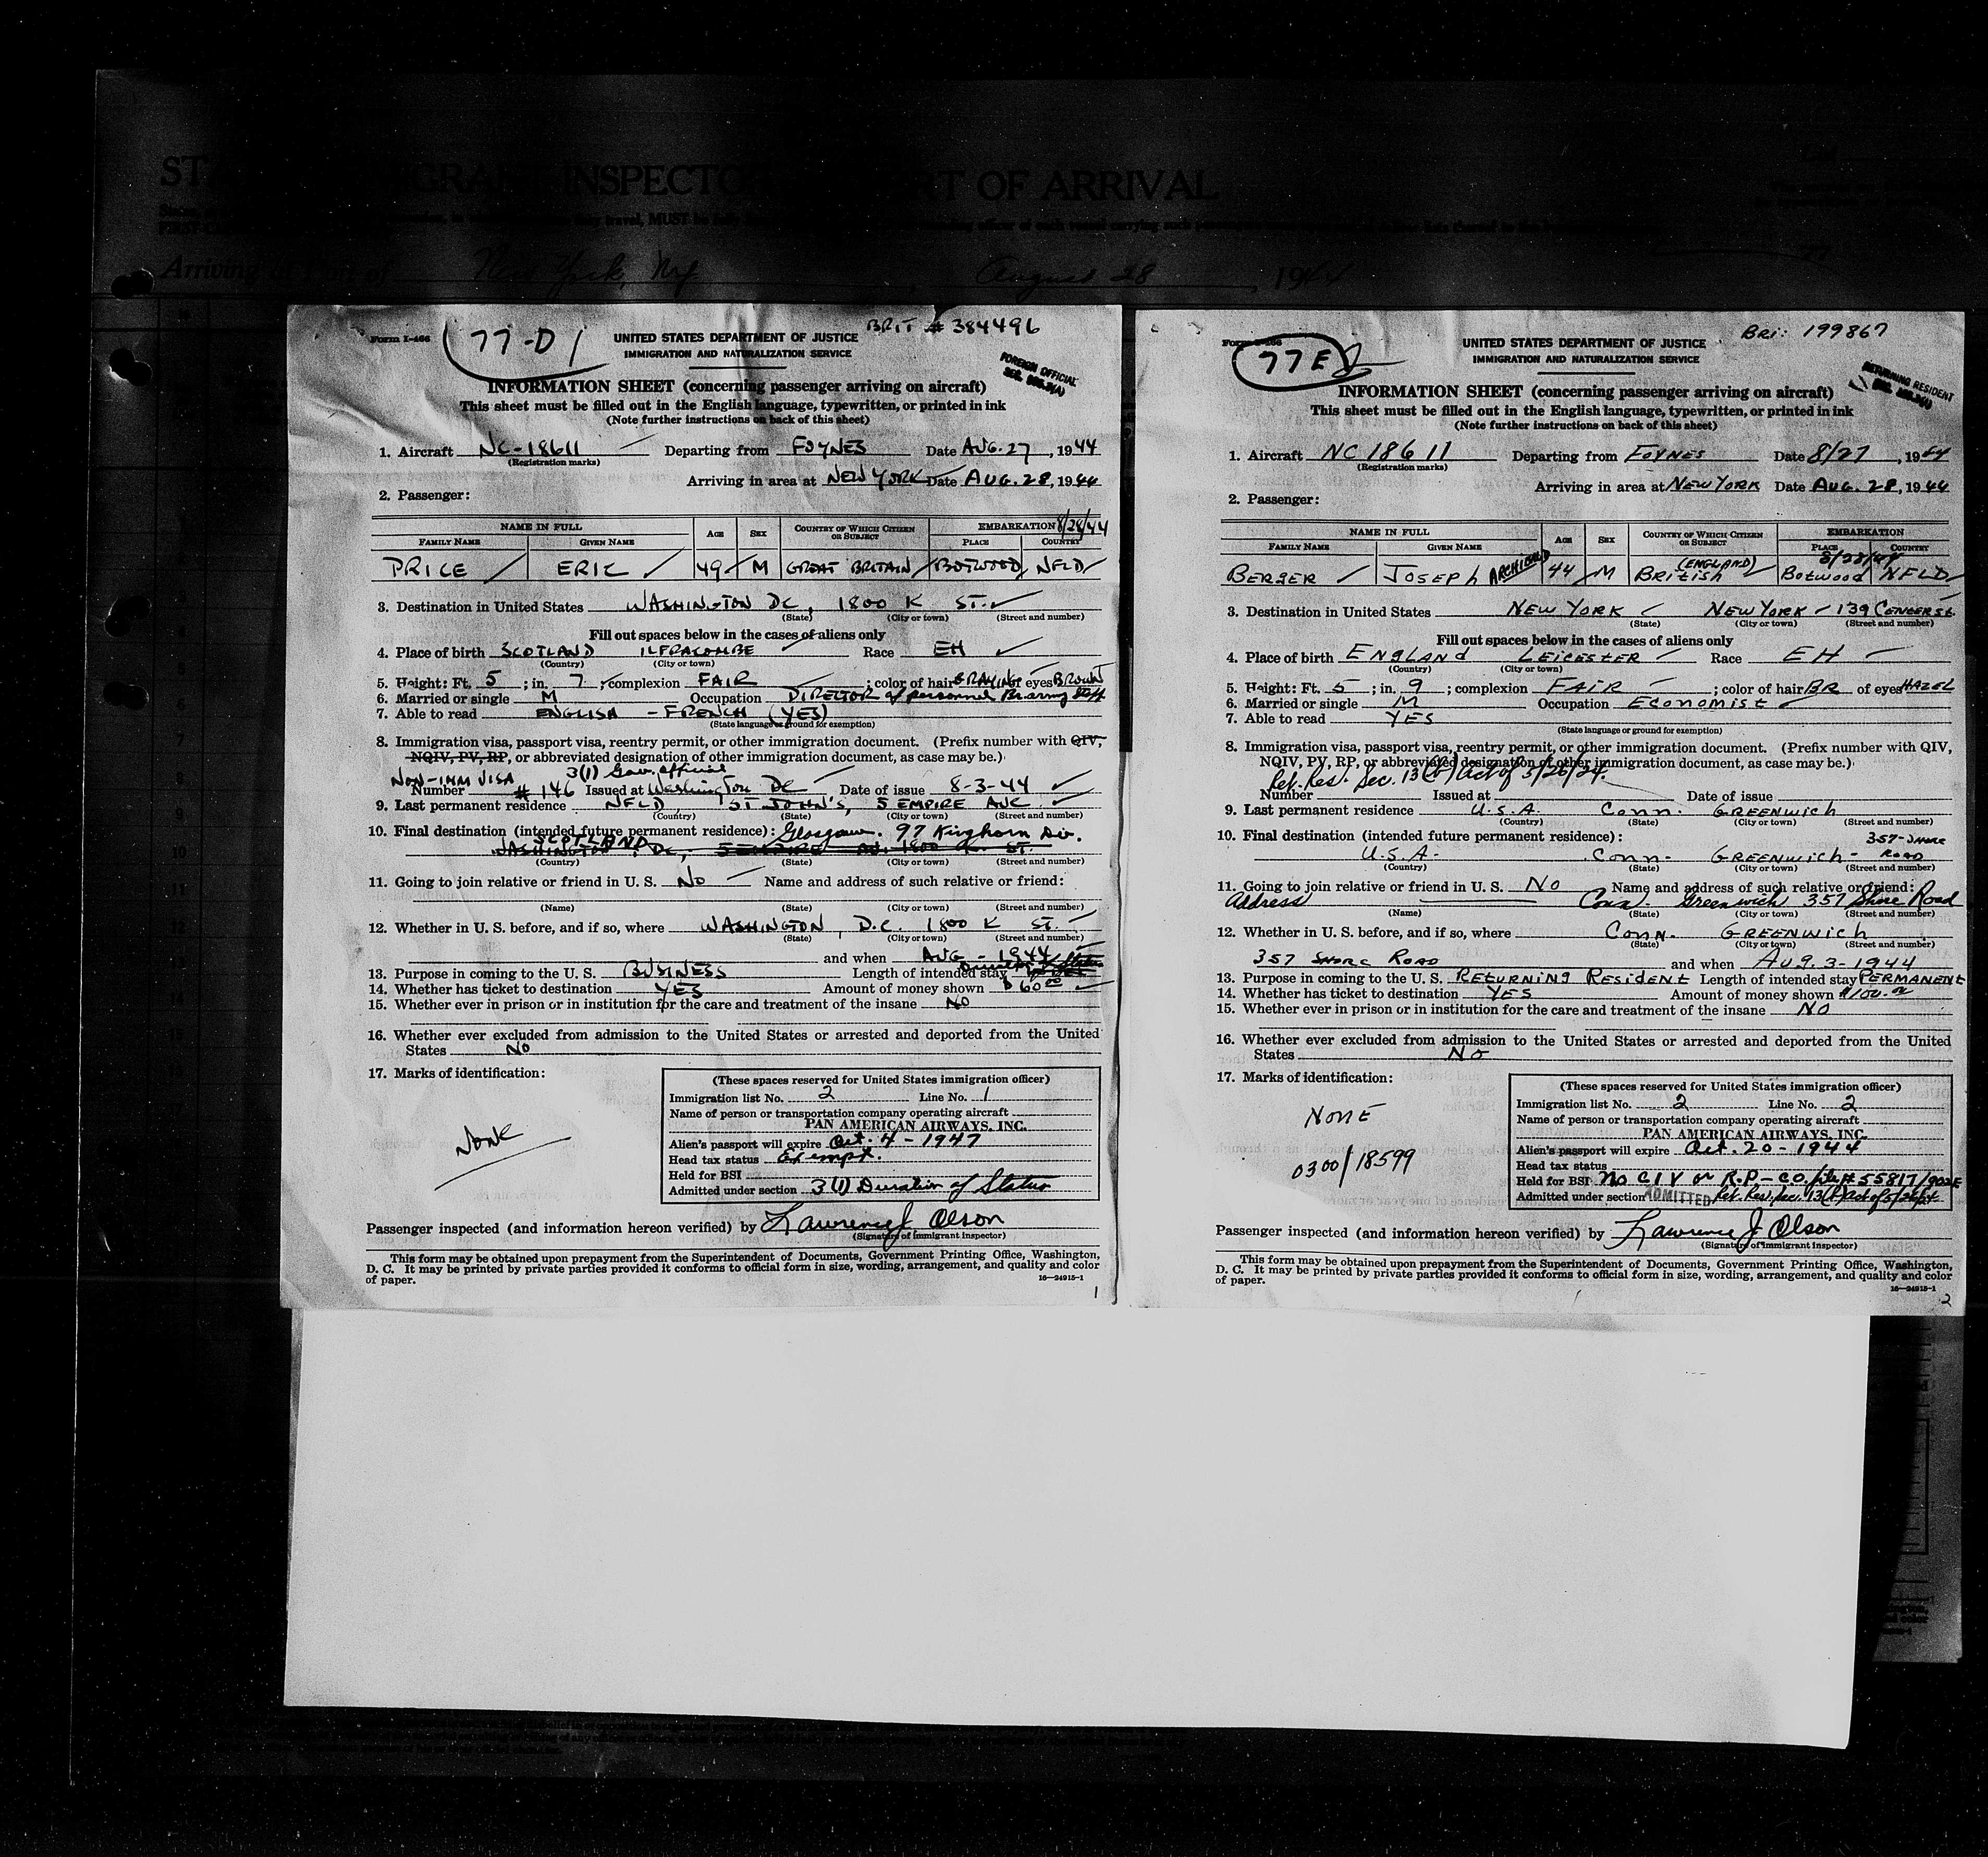 INSPECTO
OF ARRIVAL
Arriving
of New York, NY, August 28, 1944
Form I-466
77-D
BRIT # 384496
UNITED STATES DEPARTMENT OF JUSTICE
IMMIGRATION AND NATURALIZATION SERVICE
FOREIGN OFFICIAL
INFORMATION SHEET (concerning passenger arriving on aircraft)
This sheet must be filled out in the English language, typewritten, or printed in ink
(Note further instructions on back of this sheet)
1. Aircraft NC-18611 Departing from FOYNES Date AUG. 27, 1944
(Registration marks)
Arriving in area at NEW YORK Date AUG. 28, 1944
2. Passenger:
NAME IN FULL AGE SEX COUNTRY OF WHICH CITIZEN OR SUBJECT EMBARKATION 8/28/44
FAMILY NAME GIVEN NAME PLACE COUNTRY
PRICE ERIC 49 M GREAT BRITAIN BOTWOOD NFLD
3. Destination in United States WASHINGTON DC, 1800 K ST.
(State) (City or town) (Street and number)
Fill out spaces below in the cases of aliens only
4. Place of birth SCOTLAND ILFRACOMBE Race EH
(Country) (City or town)
5. Height: Ft. 5; in. 7; complexion FAIR; color of hair GRAYING of eyes BROWN
6. Married or single M Occupation DIRECTOR of personnel
7. Able to read ENGLISH - FRENCH (YES)
(State language or ground for exemption)
8. Immigration visa, passport visa, reentry permit, or other immigration document. (Prefix number with QIV,
NQIV, PV, RP, or abbreviated designation of other immigration document, as case may be.)
NON-IMM VISA 3(1) Gov. official
Number # 146 Issued at Washington DC Date of issue 8-3-44
9. Last permanent residence NFLD, ST JOHN'S, 5 EMPIRE AVE.
(Country) (State) (City or town) (Street and number)
10. Final destination (intended future permanent residence): Glasgow. 97 Kinghorn Dr.
SCOTLAND
WASHINGTON, DC, 5 EMPIRE AV. 1800 K. ST.
(Country) (State) (City or town) (Street and number)
11. Going to join relative or friend in U. S. No Name and address of such relative or friend:
(Name) (State) (City or town) (Street and number)
12. Whether in U. S. before, and if so, where WASHINGTON, D.C. 1800 K ST.
(State) (City or town) (Street and number)
and when AUG - 1944
13. Purpose in coming to the U. S. BUSINESS Length of intended stay Duration Status
14. Whether has ticket to destination YES Amount of money shown $60.00
15. Whether ever in prison or in institution for the care and treatment of the insane NO
16. Whether ever excluded from admission to the United States or arrested and deported from the United
States NO
17. Marks of identification:
NONE
(These spaces reserved for United States immigration officer)
Immigration list No. 2 Line No. 1
Name of person or transportation company operating aircraft
PAN AMERICAN AIRWAYS, INC.
Alien's passport will expire Oct. 4 - 1947
Head tax status Exempt.
Held for BSI
Admitted under section 3(1) Duration of Status
Passenger inspected (and information hereon verified) by Lawrence J Olson
(Signature of immigrant inspector)
This form may be obtained upon prepayment from the Superintendent of Documents, Government Printing Office, Washington,
D. C. It may be printed by private parties provided it conforms to official form in size, wording, arrangement, and quality and color
of paper.
16—24915-1
1
77E
BRI: 199867
UNITED STATES DEPARTMENT OF JUSTICE
IMMIGRATION AND NATURALIZATION SERVICE
RETURNING RESIDENT
INFORMATION SHEET (concerning passenger arriving on aircraft)
This sheet must be filled out in the English language, typewritten, or printed in ink
(Note further instructions on back of this sheet)
1. Aircraft NC 18611 Departing from FOYNES Date 8/27, 1944
(Registration marks)
Arriving in area at NEW YORK Date AUG. 28, 1944
2. Passenger:
NAME IN FULL AGE SEX COUNTRY OF WHICH CITIZEN OR SUBJECT EMBARKATION
FAMILY NAME GIVEN NAME PLACE 8/28/44 COUNTRY
BERGER JOSEPH ARCHIBALD 44 M (ENGLAND) BRITISH Botwood NFLD
3. Destination in United States NEW YORK NEW YORK - 139
(State) (City or town) (Street and number)
Fill out spaces below in the cases of aliens only
4. Place of birth ENGLAND LEICESTER Race EH
(Country) (City or town)
5. Height: Ft. 5; in. 9; complexion FAIR; color of hair BR of eyes HAZEL
6. Married or single M Occupation ECONOMIST
7. Able to read YES
(State language or ground for exemption)
8. Immigration visa, passport visa, reentry permit, or other immigration document. (Prefix number with QIV,
NQIV, PV, RP, or abbreviated designation of other immigration document, as case may be.)
Ret. Res. Sec. 13(b) Act of 5/26/24.
Number Issued at Date of issue
9. Last permanent residence U.S.A. Conn. GREENWICH
(Country) (State) (City or town) (Street and number)
10. Final destination (intended future permanent residence): 357-SHORE
U.S.A. Conn. GREENWICH - ROAD
(Country) (State) (City or town) (Street and number)
11. Going to join relative or friend in U. S. NO Name and address of such relative or friend:
Address Conn. Greenwich 357 Shore Road
(Name) (State) (City or town) (Street and number)
12. Whether in U. S. before, and if so, where Conn. GREENWICH
(State) (City or town) (Street and number)
357 SHORE ROAD and when AUG. 3-1944
13. Purpose in coming to the U. S. RETURNING RESIDENT Length of intended stay PERMANENT
14. Whether has ticket to destination YES Amount of money shown $100.00
15. Whether ever in prison or in institution for the care and treatment of the insane NO
16. Whether ever excluded from admission to the United States or arrested and deported from the United
States NO
17. Marks of identification:
NONE
0300/18599
(These spaces reserved for United States immigration officer)
Immigration list No. 2 Line No. 2
Name of person or transportation company operating aircraft
PAN AMERICAN AIRWAYS, INC.
Alien's passport will expire Oct. 20 - 1944
Head tax status
Held for BSI No CIV or R.P - CO file #55817/902E
Admitted under section ADMITTED Ret. Res. Sec. 13(b) Act of 5/26/24
Passenger inspected (and information hereon verified) by Lawrence J Olson
(Signature of immigrant inspector)
This form may be obtained upon prepayment from the Superintendent of Documents, Government Printing Office, Washington,
D. C. It may be printed by private parties provided it conforms to official form in size, wording, arrangement, and quality and color
of paper.
16—24915-1
2